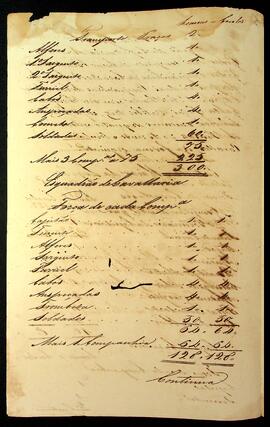 homens cavalos
Transporte Praças 2
Alferes 1
1º Sargento 1
2º Sargento 1
Furriel 1
Cabos 4
Anspeçadas 4
Corneta 1
Soldados 60
75
Mais 3 Comp.as a 75 225
300
Esquadrão de Cavallaria
Força de cada Comp.a
Capitão 1 1
Tenente 1 1
Alferes 1 1
Sargento 1 1
Furriel 1 1
Cabos 4 4
Anspeçadas 4 4
Trombeta 1 1
Soldados 50 50
64 64
Mais 1 Companhia 64 64
128 128
Continua